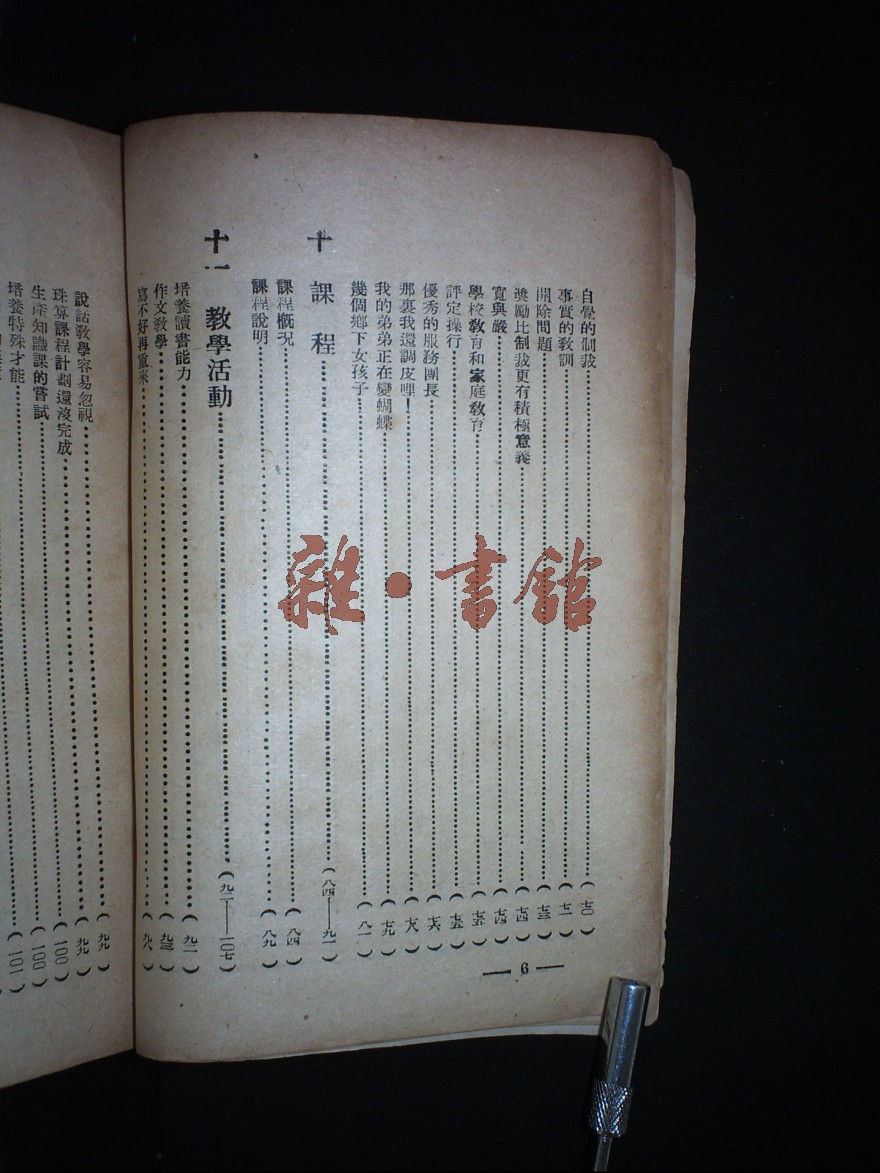 自覺的制裁(七〇)
事實的教訓(七一)
開除問題(七三)
獎勵比制裁更有積極意義(七四)
寬與嚴(七四)
學校教育和家庭教育(七五)
評定操行(七五)
優秀的服務團長(七六)
那裏我還調皮哩！(七八)
我的弟弟正在變蝴蝶(七九)
幾個鄉下女孩子(八一)
十 課程(八四——九一)
課程概況(八四)
課程說明(八九)
十一 教學活動(九二——一〇七)
培養讀書能力(九二)
作文教學(九三)
寫不好再重來(九八)
— 6 —
說話教學容易忽視(九九)
珠算課程計劃還沒完成(九九)
生產知識課的嘗試(一〇〇)
培養特殊才能(一〇〇)
(一〇一)
雜·書館